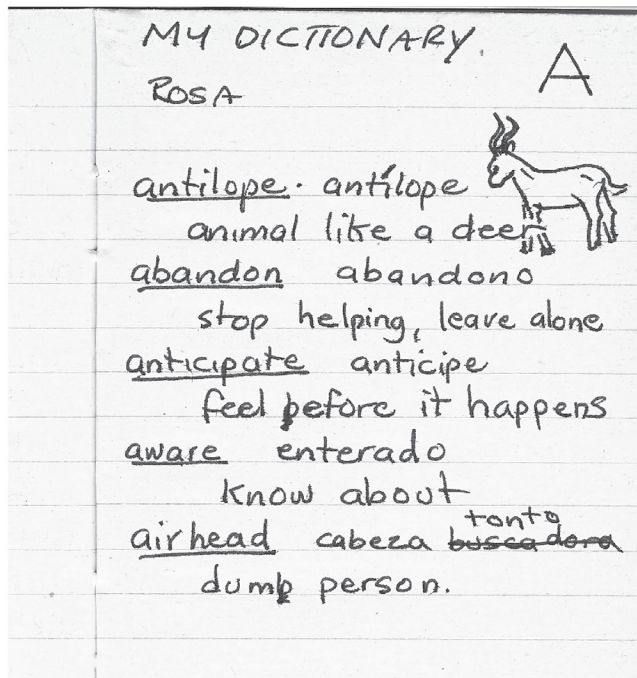 MY DICTIONARY.
A
ROSA
antilope. antílope
animal like a deer
abandon abandono
stop helping, leave alone
anticipate anticipe
feel before it happens
aware enterado
know about
tonto
airhead cabeza buscadora
dumb person.